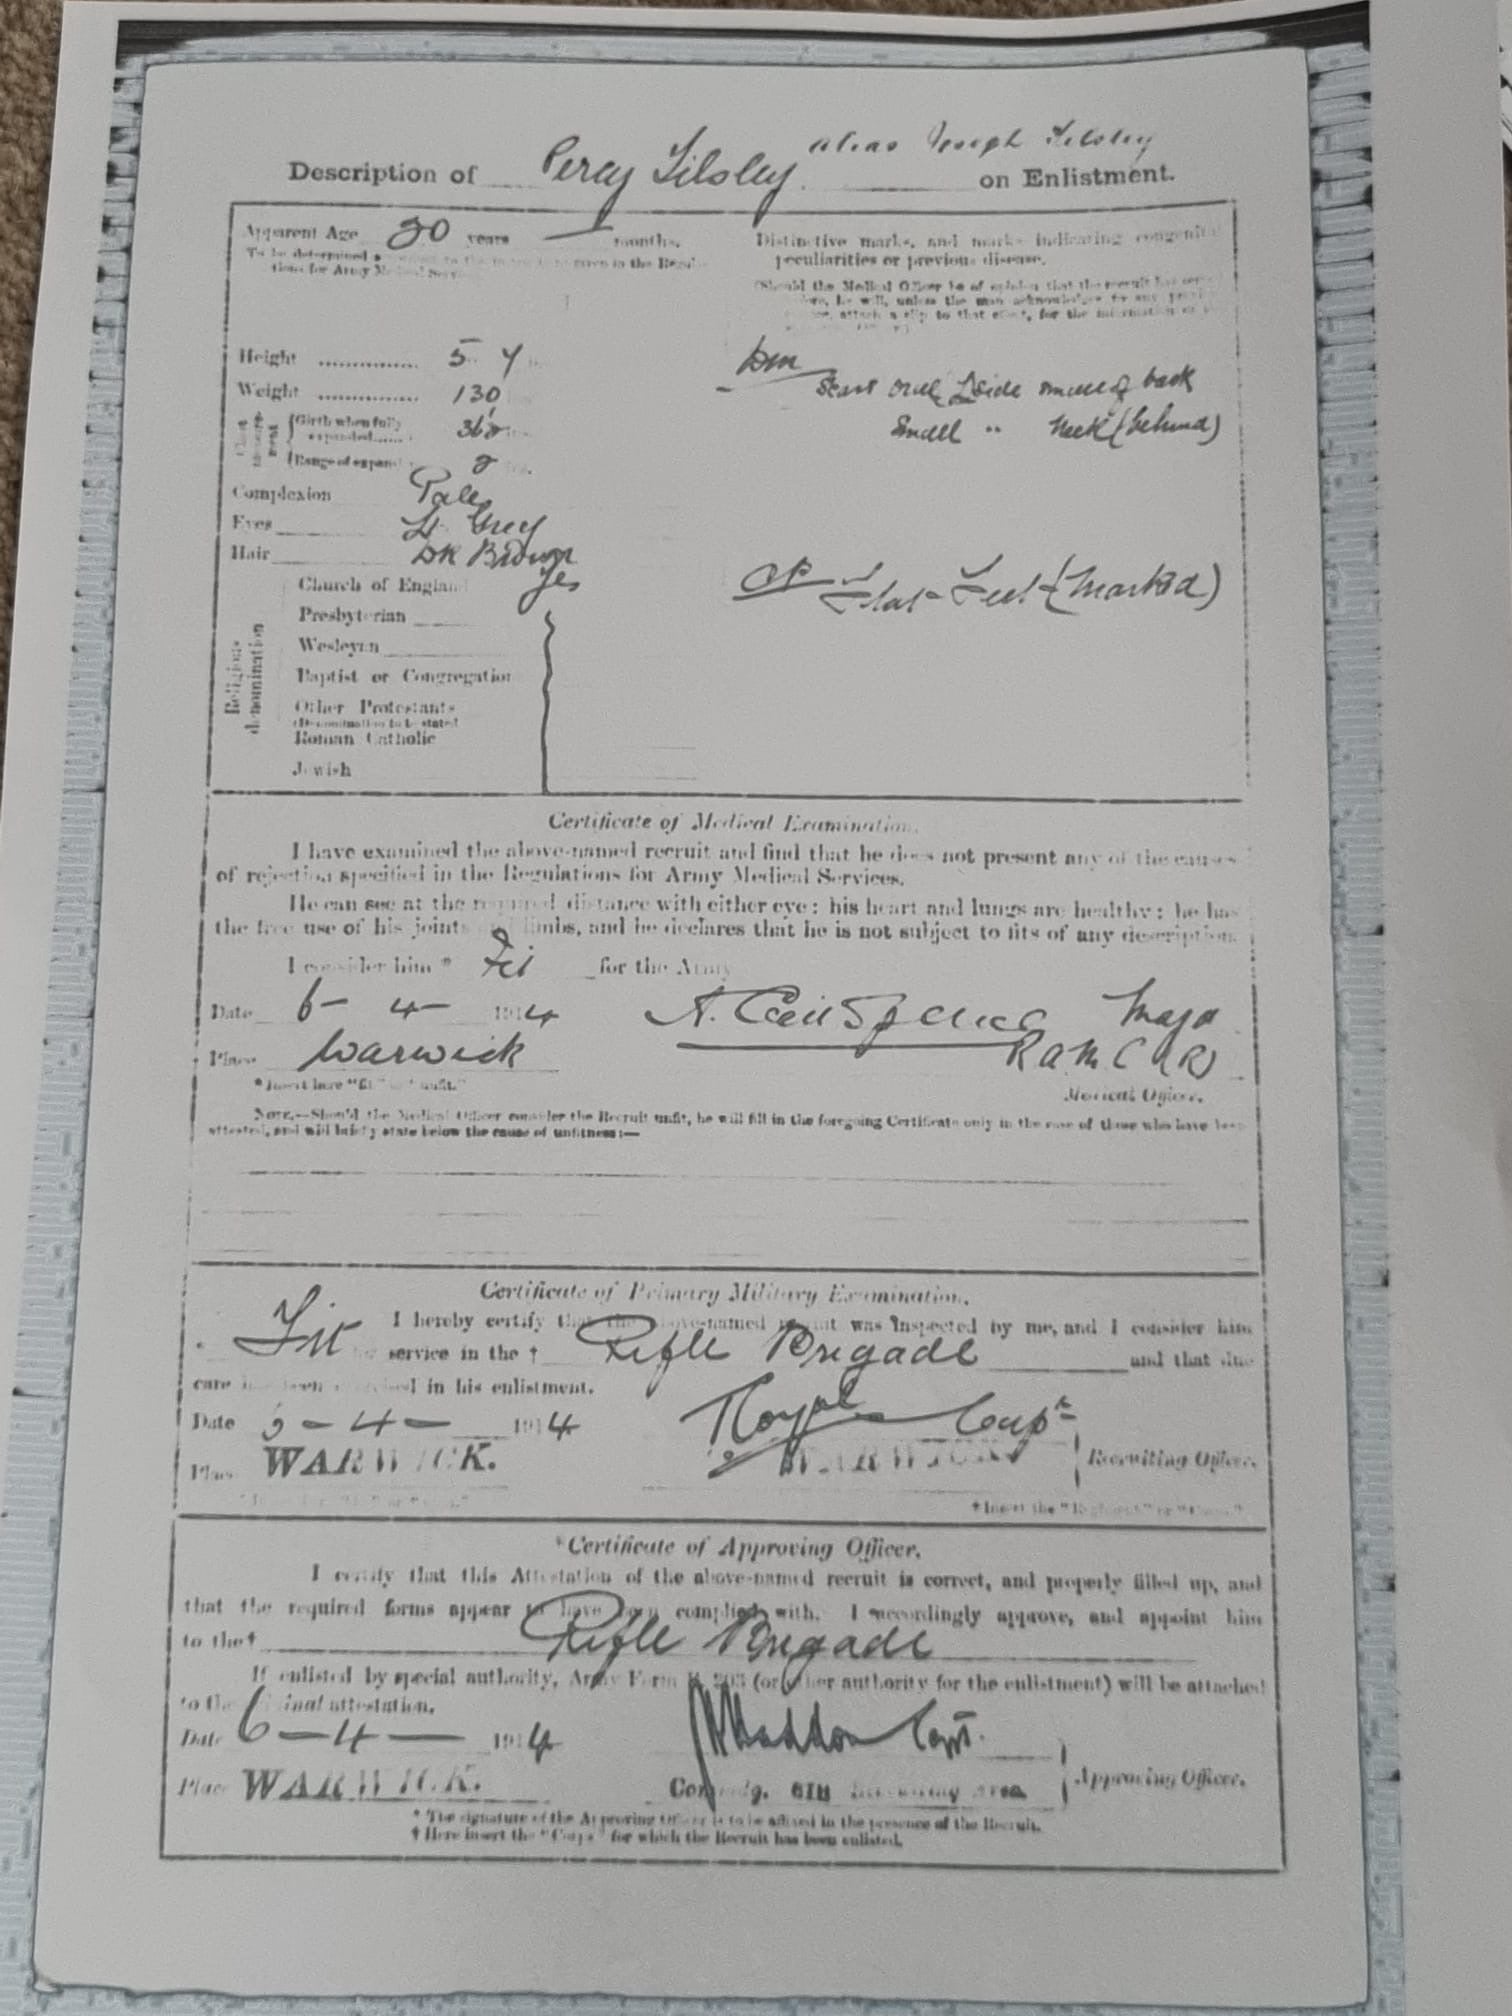 alias Joseph Tilsley
Description of Percy Tilsley on Enlistment.
Apparent Age 20 years — months.
To be determined in the
tions for Army
Distinctive marks, and marks indicating congenital
peculiarities or previous disease.
(Should the Medical Officer be of opinion that the recruit has
he will, unless the man acknowledges to any
attach a slip to that effect, for the information of
Height .............. 5
Weight .............. 130
Girth when fully
expanded
Range of expan 2
DM
Scars over L side small of back
Small " Neck (behind)
Complexion Pale
Eyes Lt Grey
Hair DK Brown
Religious denomination
Church of England Yes
Presbyterian
Wesleyan
Baptist or Congregation
Other Protestants
(Denomination to be stated
Roman Catholic
Jewish
Flat Feet (marked)
Certificate of Medical Examination.
I have examined the above-named recruit and find that he does not present any of the causes
of rejection specified in the Regulations for Army Medical Services.
He can see at the required distance with either eye; his heart and lungs are healthy; he has
the free use of his joints limbs, and he declares that he is not subject to fits of any description.
I consider him * Fit for the Army
Date 6 – 4 – 1914 Major
Place Warwick R A M C (R)
Medical Officer.
* Insert here "fit" "unfit."
NOTE.—Should the Medical Officer consider the Recruit unfit, he will fill in the foregoing Certificate only in the case of those who have been
attested, and will briefly state below the cause of unfitness:—
Certificate of Primary Military Examination.
I hereby certify that the above-named recruit was inspected by me, and I consider him
* Fit for service in the † Rifle Brigade and that due
care been in his enlistment.
Date – 4 – 1914 Capt
Place WARWICK. WARWICK Recruiting Officer.
† Insert the "Regiment" or "Corps"
*Certificate of Approving Officer.
I certify that this Attestation of the above-named recruit is correct, and properly filled up, and
that the required forms appear to have been complied with. I accordingly approve, and appoint him
to the† Rifle Brigade
If enlisted by special authority, Army Form B. 203 (or other authority for the enlistment) will be attached
to the original attestation.
Date 6 – 4 – 1914 Capt.
Place WARWICK. Comndg. Recruiting Area Approving Officer.
* The signature of the Approving Officer is to be affixed in the presence of the Recruit.
† Here insert the "Corps" for which the Recruit has been enlisted.